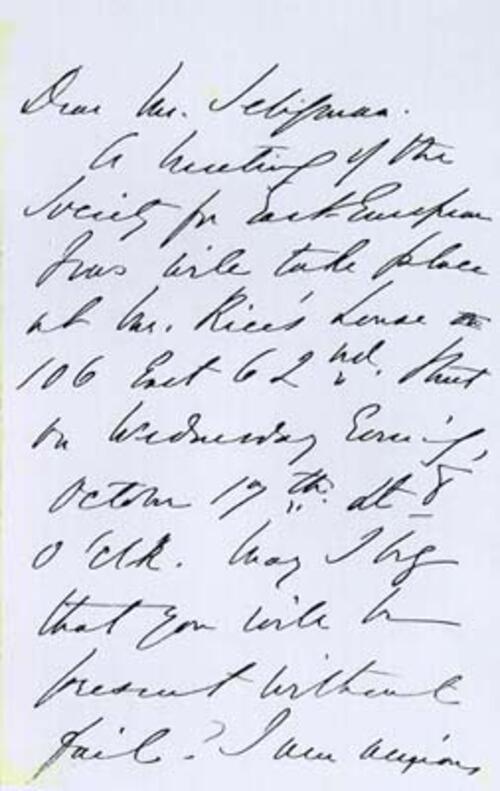 Dear Mr. Seligman.
A meeting of the
Society for East European
Jews will take place
at Mr. Rice's house
106 East 62nd. Street
on Wednesday Evening,
October 17th. at 8
O'clk. May I beg
that you will be
present without
fail? I am anxious